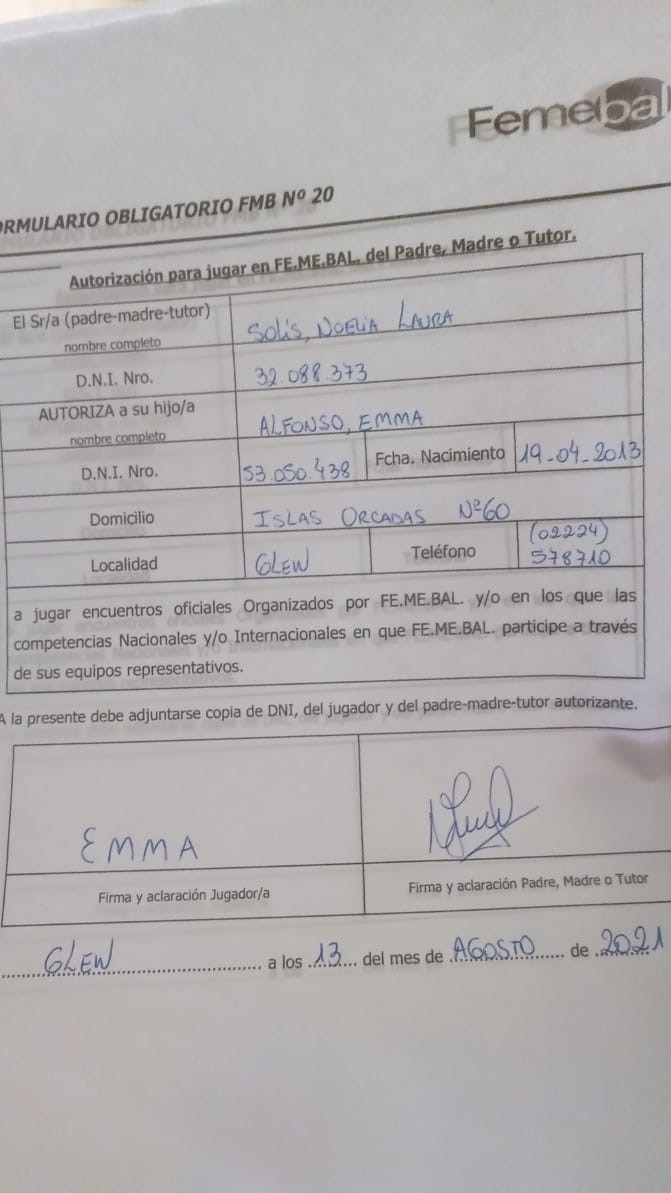 Femebal
ORMULARIO OBLIGATORIO FMB Nº 20
Autorización para jugar en FE.ME.BAL. del Padre, Madre o Tutor.
El Sr/a (padre-madre-tutor)
nombre completo
SOLIS, NOELIA LAURA
D.N.I. Nro.
32.088.373
AUTORIZA a su hijo/a
nombre completo
ALFONSO, EMMA
D.N.I. Nro.
53.050.438
Fcha. Nacimiento
19-04-2013
Domicilio
ISLAS ORCADAS Nº60
Localidad
GLEW
Teléfono
(02224)
578710
a jugar encuentros oficiales Organizados por FE.ME.BAL. y/o en los que las
competencias Nacionales y/o Internacionales en que FE.ME.BAL. participe a través
de sus equipos representativos.
A la presente debe adjuntarse copia de DNI, del jugador y del padre-madre-tutor autorizante.
EMMA
Firma y aclaración Jugador/a
Firma y aclaración Padre, Madre o Tutor
GLEW a los 13 del mes de AGOSTO de 2021